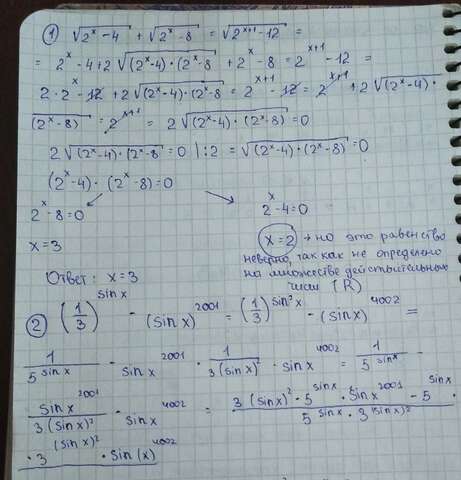 ① √(2^x − 4) + √(2^x − 8) = √(2^(x+1) − 12) =
= 2^x − 4 + 2√((2^x − 4)·(2^x − 8) + 2^x − 8 = 2^(x+1) − 12 =
2·2^x − 12 + 2√((2^x − 4)·(2^x − 8) = 2^(x+1) − 12 = 2^(x+1) + 2√(2^x − 4)·
(2^x − 8) = 2^(x+1) = 2√((2^x − 4)·(2^x − 8)) = 0
2√((2^x − 4)·(2^x − 8) = 0 | : 2 = √((2^x − 4)·(2^x − 8)) = 0
(2^x − 4)·(2^x − 8) = 0
2^x − 8 = 0 2^x − 4 = 0
x = 3 x = 2 → но это равенство
неверно, так как не определено
на множестве действительных
Ответ: x = 3 чисел (R)
② (1/3)^(sin x) − (sin x)^2001 = (1/3)^(sin² x) − (sin x)^4002 =
1/5^(sin x) − sin x^2001 · 1/3^(sin x)^2 · sin x^4002 = 1/5^(sin x) −
sin x^2001/3^(sin x)^2 · sin x^4002 = 3^(sin x)^2 · 5^(sin x) · sin x^2001 − 5^(sin x) ·/5^(sin x) · 3^(sin x)^2
· 3^(sin x)^2 · sin(x)^4002